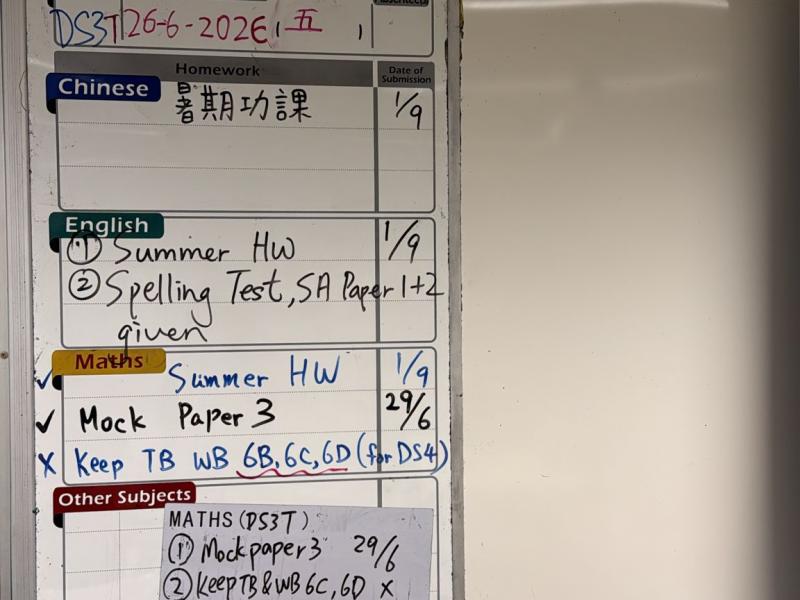 DS3T 26-6-2026 (五)
Homework
Date of Submission
Chinese
暑期功課 1/9
English
① Summer HW 1/9
② Spelling Test, SA Paper 1+2
given
Maths
✓ Summer HW 1/9
✓ Mock Paper 3 29/6
x Keep TB WB 6B, 6C, 6D (for DS4)
Other Subjects
MATHS (DS3T)
① Mock paper 3 29/6
② Keep TB & WB 6C, 6D x